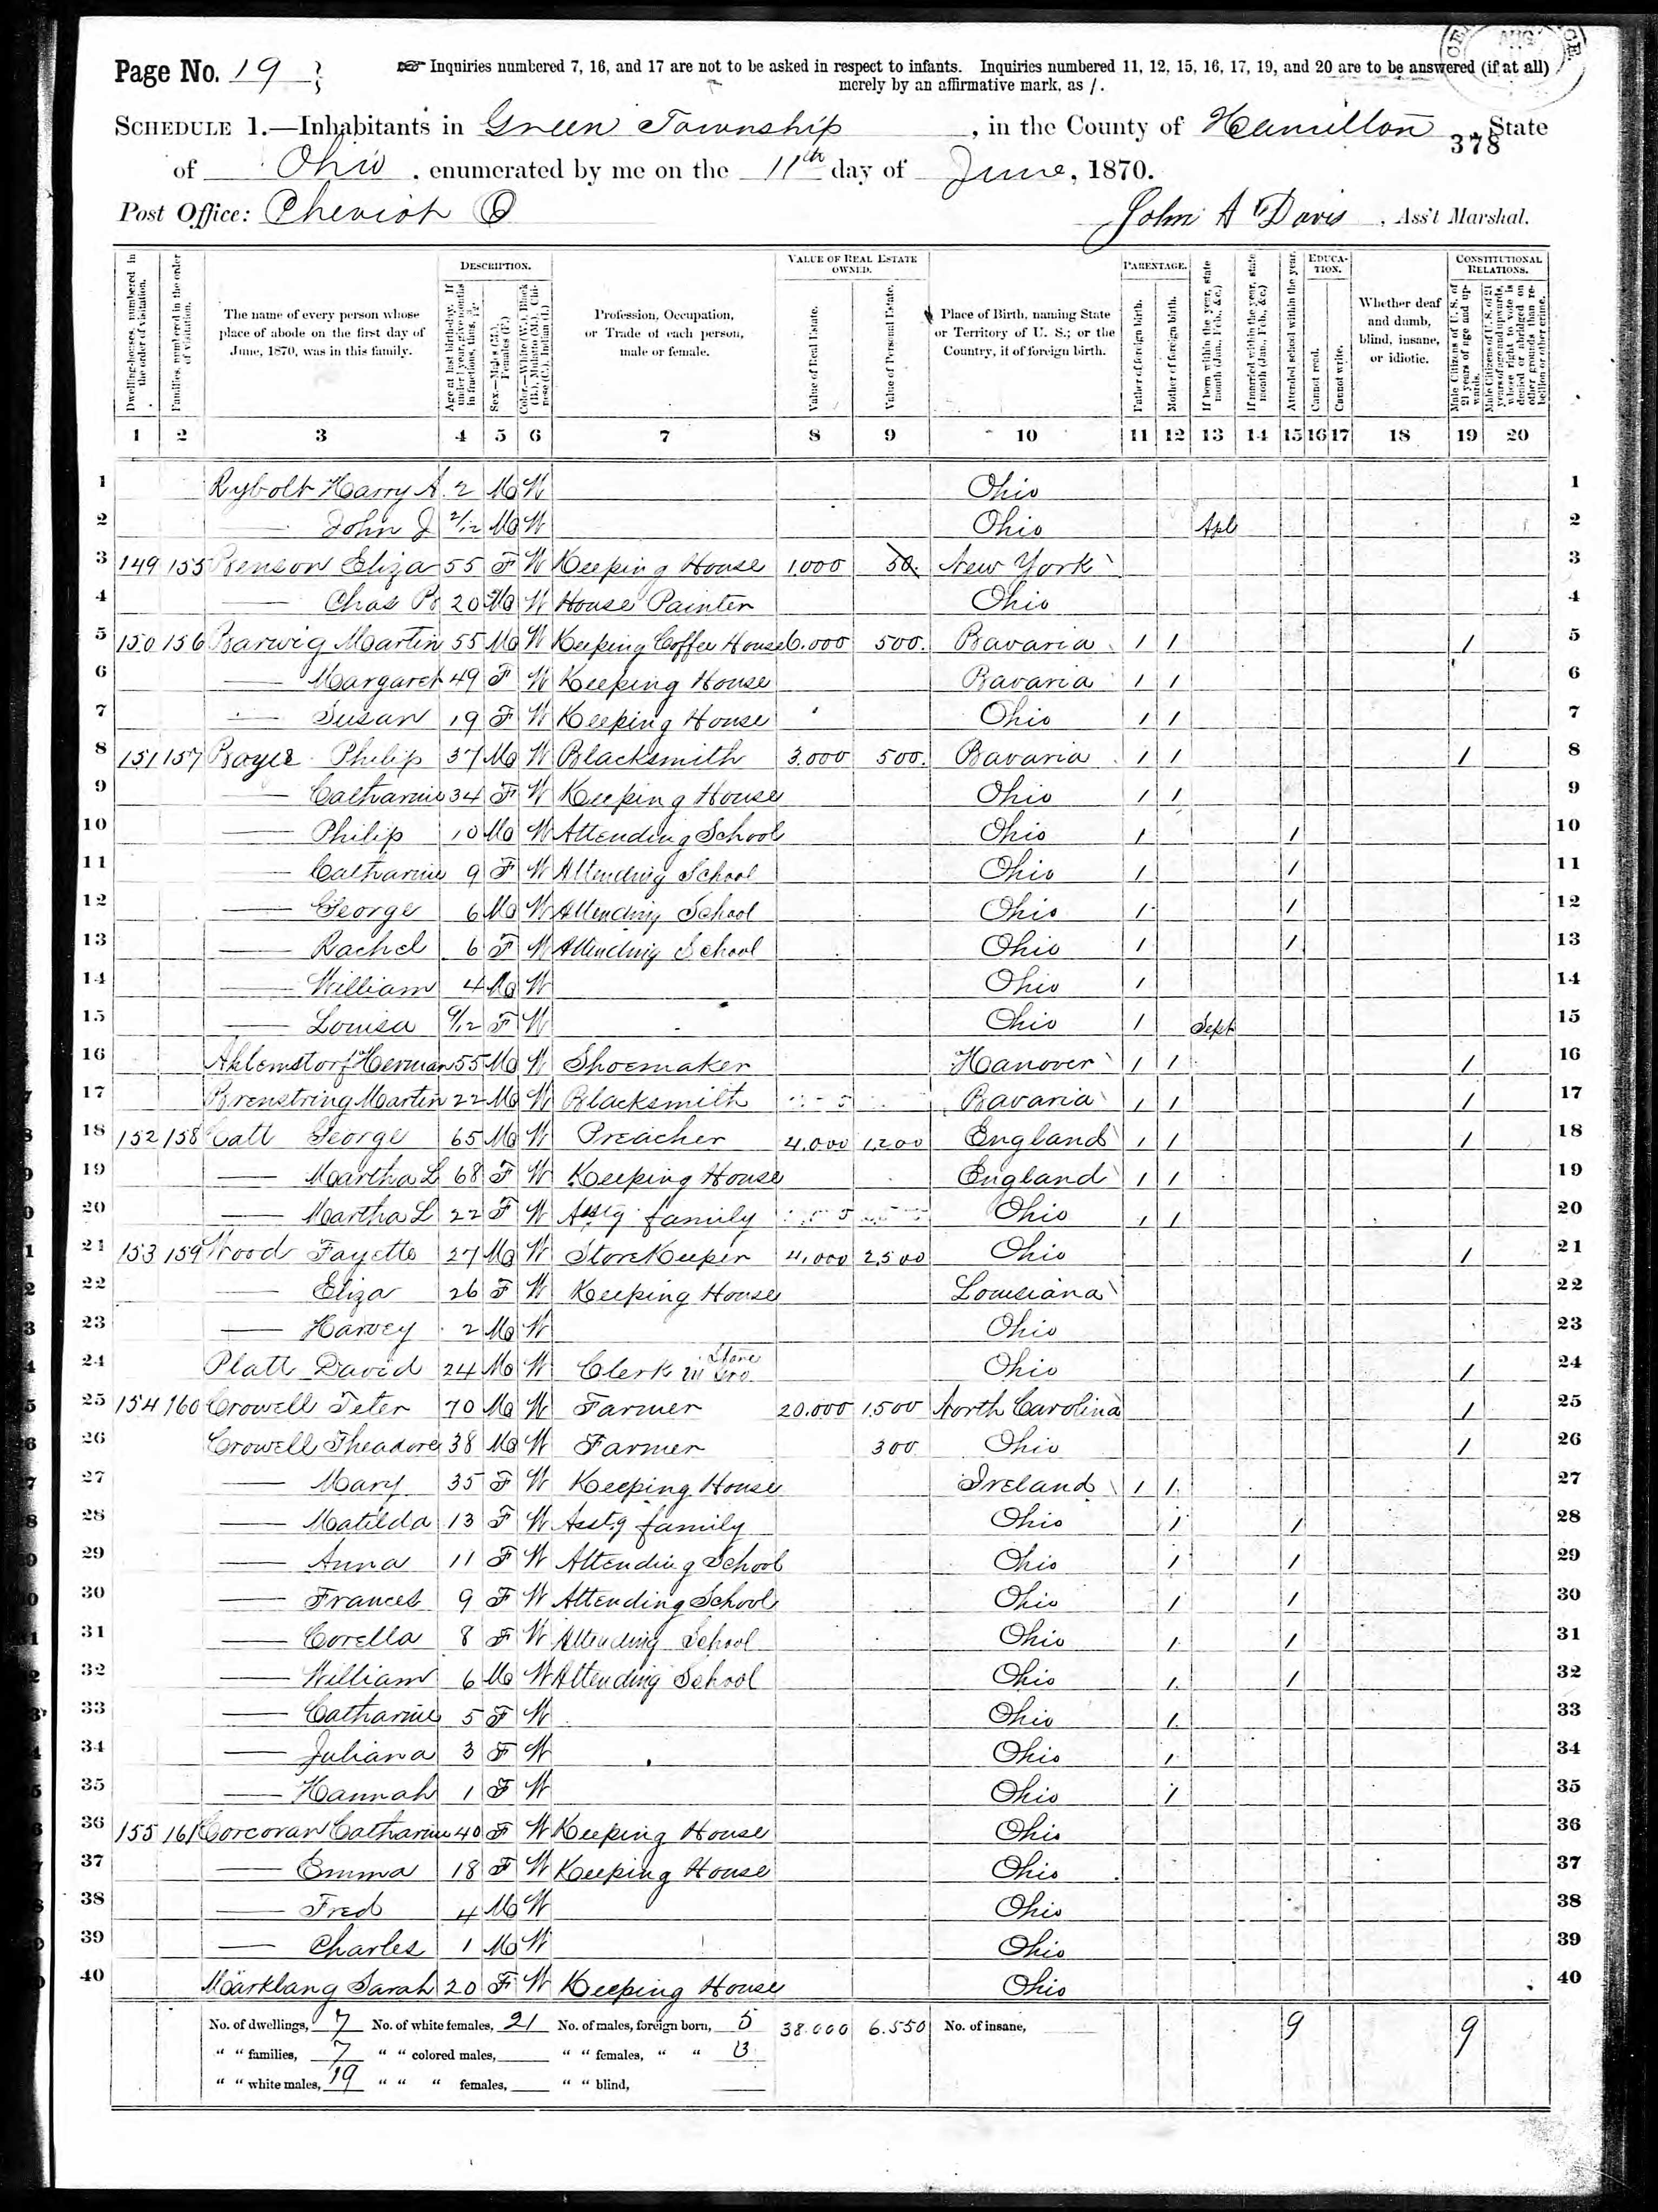 Page No. 19
☞ Inquiries numbered 7, 16, and 17 are not to be asked in respect to infants. Inquiries numbered 11, 12, 15, 16, 17, 19, and 20 are to be answered (if at all)
merely by an affirmative mark, as /.
SCHEDULE 1.—Inhabitants in Green Township, in the County of Hamilton, State
378
of Ohio, enumerated by me on the 11th day of June, 1870.
Post Office: Cheviot O
John A Davis, Ass't Marshal.
Dwelling-houses, numbered in the order of visitation.
Families, numbered in the order of visitation.
The name of every person whose place of abode on the first day of June, 1870, was in this family.
DESCRIPTION.
Age at last birth-day. If under 1 year, give months in fractions, thus, 3/12.
Sex.—Males (M.), Females (F.)
Color.—White (W.), Black (B.), Mulatto (M.), Chinese (C.), Indian (I.)
Profession, Occupation, or Trade of each person, male or female.
VALUE OF REAL ESTATE OWNED.
Value of Real Estate.
Value of Personal Estate.
Place of Birth, naming State or Territory of U. S.; or the Country, if of foreign birth.
PARENTAGE.
Father of foreign birth.
Mother of foreign birth.
If born within the year, state month (Jan., Feb., &c.)
If married within the year, state month (Jan., Feb., &c.)
Attended school within the year.
EDUCATION.
Cannot read.
Cannot write.
Whether deaf and dumb, blind, insane, or idiotic.
CONSTITUTIONAL RELATIONS.
Male Citizens of U. S. of 21 years of age and upwards.
Male Citizens of U. S. of 21 years of age and upwards, whose right to vote is denied or abridged on other grounds than rebellion or other crime.
1 2 3 4 5 6 7 8 9 10 11 12 13 14 15 16 17 18 19 20
1 Rybolt Harry A 2 M W Ohio 1
2 — John J 2/12 M W Ohio Apl 2
3 149 155 Benson Eliza 55 F W Keeping House 1.000 50. New York 3
4 — Chas 20 M W House Painter Ohio 4
5 150 156 Barwig Martin 55 M W Keeping Coffee House 6.000 500. Bavaria / / / 5
6 — Margaret 49 F W Keeping House Bavaria / / 6
7 — Susan 19 F W Keeping House Ohio / / 7
8 151 157 Philip 37 M W Blacksmith 3.000 500. Bavaria / / / 8
9 — Catharine 34 F W Keeping House Ohio / / 9
10 — Philip 10 M W Attending School Ohio / / 10
11 — Catharine 9 F W Attending School Ohio / / 11
12 — George 6 M W Attending School Ohio / / 12
13 — Rachel 6 F W Attending School Ohio / / 13
14 — William 4 M W Ohio / 14
15 — Louisa 9/12 F W Ohio / Sept 15
16 Herman 55 M W Shoemaker Hanover / / / 16
17 Brenstring Martin 22 M W Blacksmith Bavaria / / / 17
18 152 158 Catt George 65 M W Preacher 4.000 1,200 England / / / 18
19 — Martha L 68 F W Keeping House England / / 19
20 — Martha L 22 F W Asstg family Ohio / / 20
21 153 159 Wood Fayette 27 M W Store Keeper 4,000 2,500 Ohio / 21
22 — Eliza 26 F W Keeping House Louisiana 22
23 — Harvey 2 M W Ohio 23
24 Platt David 24 M W Clerk in Gro Store Ohio / 24
25 154 160 Crowell Peter 70 M W Farmer 20.000 1,500 North Carolina / 25
26 Crowell Theadore 38 M W Farmer 300 Ohio / 26
27 — Mary 35 F W Keeping House Ireland / / 27
28 — Matilda 13 F W Asstg family Ohio / / 28
29 — Anna 11 F W Attending School Ohio / / 29
30 — Frances 9 F W Attending School Ohio / / 30
31 — Corella 8 F W Attending School Ohio / / 31
32 — William 6 M W Attending School Ohio / / 32
33 — Catharine 5 F W Ohio / 33
34 — Juliana 3 F W Ohio / 34
35 — Hannah 1 F W Ohio / 35
36 155 161 Corcoran Catharine 40 F W Keeping House Ohio 36
37 — Emma 18 F W Keeping House Ohio 37
38 — Fred 4 M W Ohio 38
39 — Charles 1 M W Ohio 39
40 Marklang Sarah 20 F W Keeping House Ohio 40
No. of dwellings, 7 No. of white females, 21 No. of males, foreign born, 5 38.000 6.550 No. of insane, 9 9
" " families, 7 " " colored males, " " females, " " 3
" " white males, 19 " " " females, " " blind,